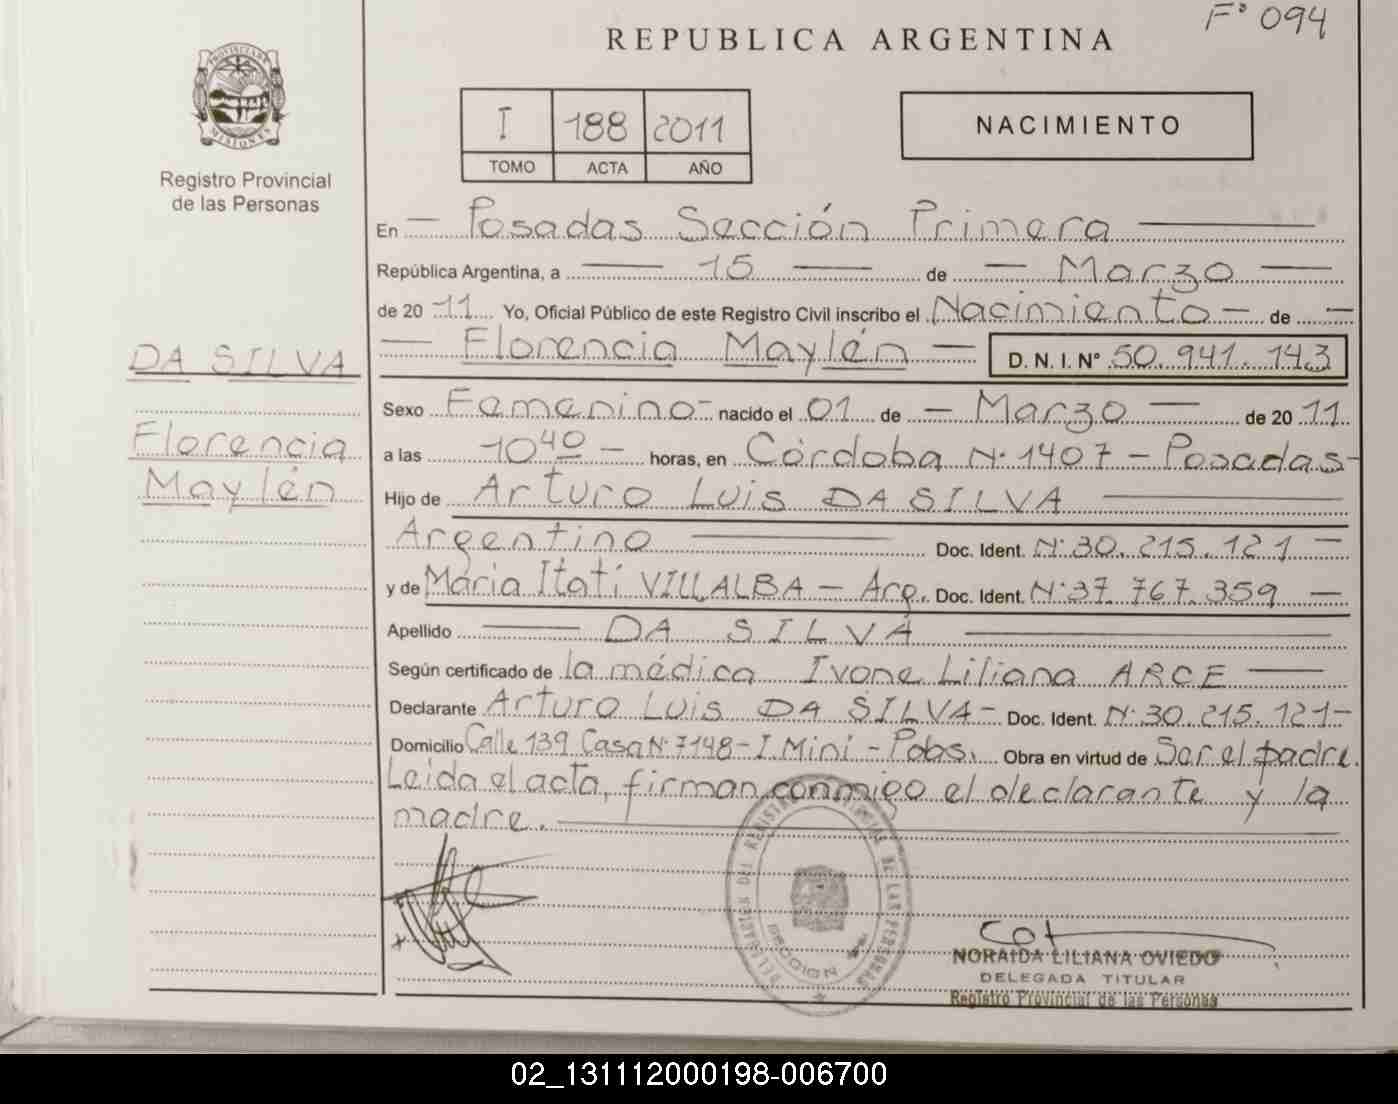 F° 094
REPUBLICA ARGENTINA
PROVINCIA DE MISIONES
Registro Provincial
de las Personas
I 188 2011
TOMO ACTA AÑO
NACIMIENTO
En — Posadas Sección Primera —
República Argentina, a — 15 — de — Marzo —
de 2011 Yo, Oficial Público de este Registro Civil inscribo el Nacimiento — de —
— Florencia Maylén — D. N. I. N° 50.941.143
DA SILVA
Florencia
Maylén
Sexo Femenino - nacido el 01 de — Marzo — de 2011
a las 10 40 — horas, en Córdoba N° 1407 - Posadas -
Hijo de Arturo Luis DA SILVA —
Argentino — Doc. Ident. N° 30.215.121 —
y de María Itatí VILLALBA — Arg. Doc. Ident. N° 37.767.359 —
Apellido — DA SILVA —
Según certificado de la médica Ivone Liliana ARCE —
Declarante Arturo Luis DA SILVA - Doc. Ident. N° 30.215.121 -
Domicilio Calle 139 Casa N° 7148 - I. Miní - Pdas. Obra en virtud de Ser el padre.
Leída el acta, firman conmigo el declarante y la
madre. —
DELEGACION DEL REGISTRO PROVINCIAL DE LAS PERSONAS
SECCION 1ra.
NORAIDA LILIANA OVIEDO
DELEGADA TITULAR
Registro Provincial de las Personas
02_131112000198-006700